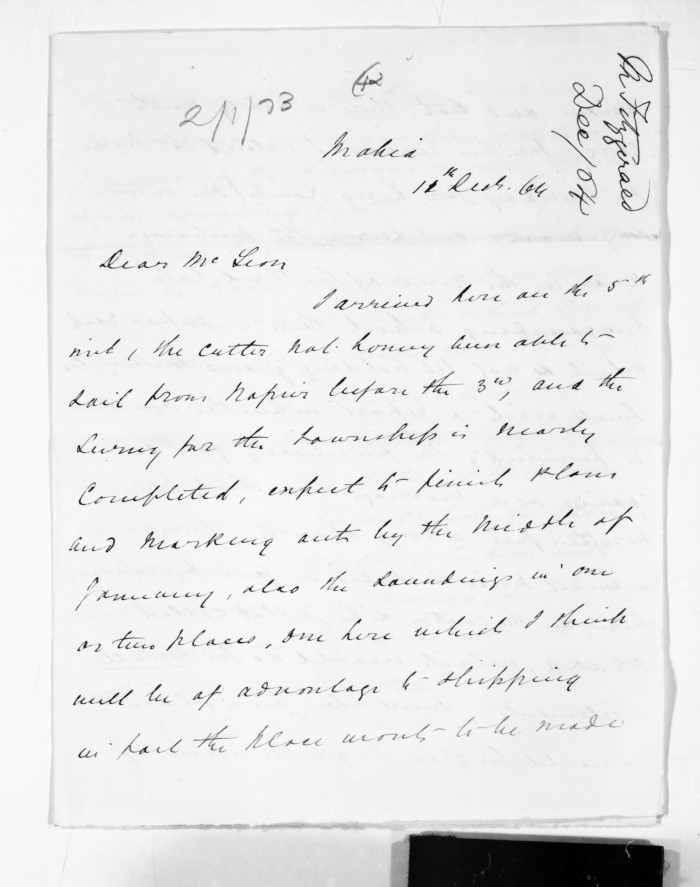 42
2/1/73
M Fitzgerald
Dec/64
Mahia
12th Decr. 64
Dear McLean
I arrived here on the 5th
inst, the cutter not having been able to
sail from Napier before the 3rd, and the
survey for the township is nearly
completed, expect to finish plans
and marking out by the middle of
January, also the soundings in one
or two places, one here which I think
will be of advantage to shipping
in fact the place wants to be made